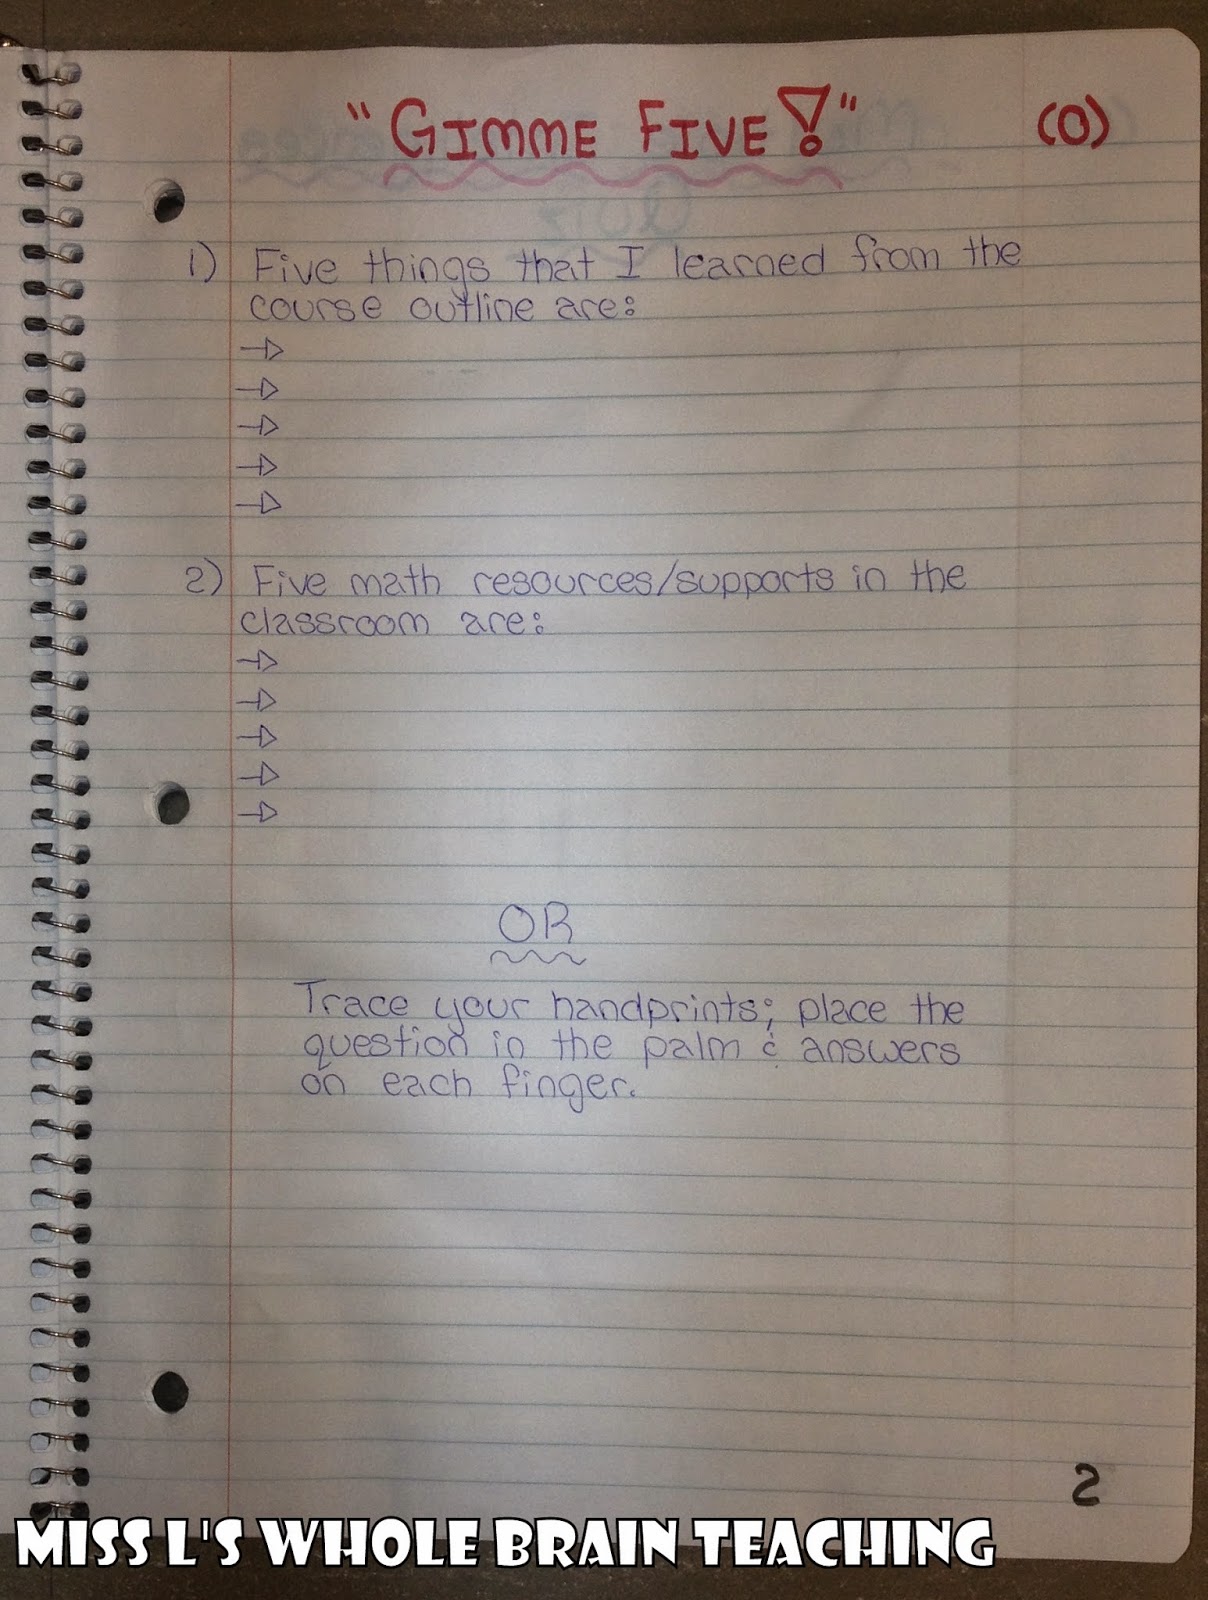 "GIMME FIVE!" (O)
1) Five things that I learned from the
course outline are:
→
→
→
→
→
2) Five math resources/supports in the
classroom are:
→
→
→
→
→
OR
Trace your handprints; place the
question in the palm & answers
on each finger.
2
MISS L'S WHOLE BRAIN TEACHING